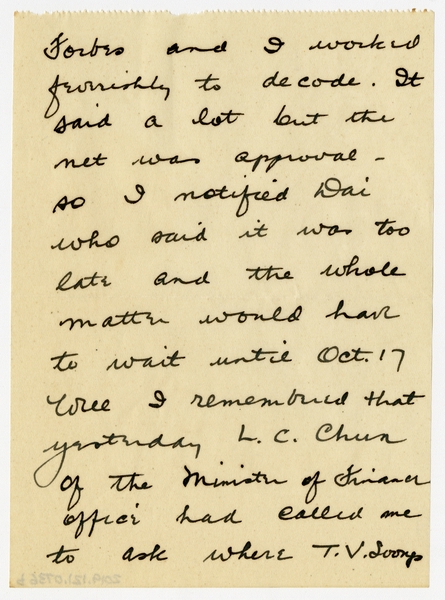 Forbes and I worked
feverishly to decode. It
said a lot but the
net was approval -
so I notified Dai
who said it was too
late and the whole
matter would have
to wait until Oct. 17
Well I remembered that
yesterday L. C. Chun
of the Minister of Finance
office had called me
to ask where T. V. Soongs
2019.121.0736 b